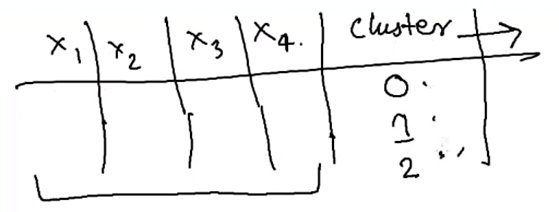 x₁ x₂ x₃ x₄. cluster →
0.
1.
2...